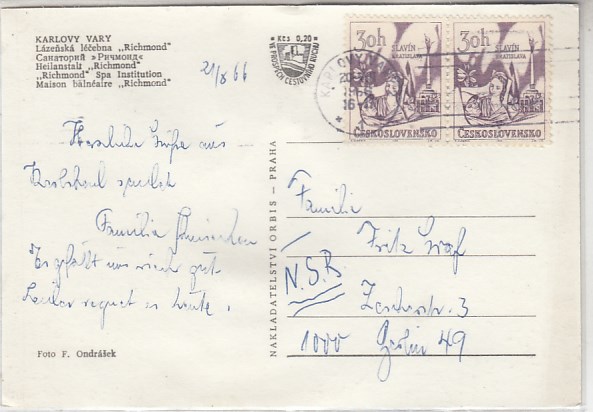 KARLOVY VARY
Lázeňská léčebna „Richmond"
Санаторий »РИЧМОНД«
Heilanstalt „Richmond"
„Richmond" Spa Institution
Maison balnéaire „Richmond"
Kčs 0,20
VE PROSPĚCH CESTOVNÍHO RUCHU
30h
SLAVÍN
BRATISLAVA
ČESKOSLOVENSKO
30h
SLAVÍN
BRATISLAVA
ČESKOSLOVENSKO
KARLOVY VARY
Herzliche Grüße aus
Karlsbad
Familie
Es gefällt uns
gut
Leider regnet es heute.
Foto F. Ondrášek
NAKLADATELSTVÍ ORBIS — PRAHA
Familie
Fritz Graf
3
1000 Berlin 49